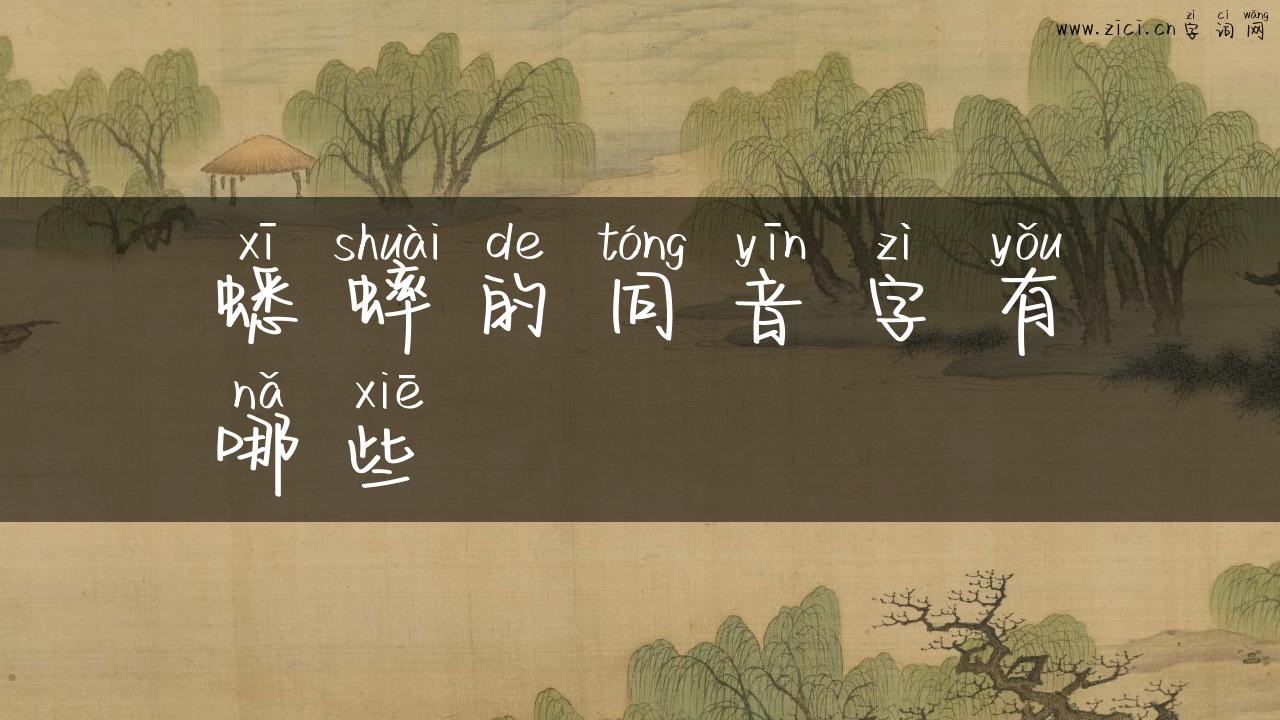 zì cí wǎng
www.zici.cn字词网
xī shuài de tóng yīn zì yǒu
蟋蟀的同音字有
nǎ xiē
哪些